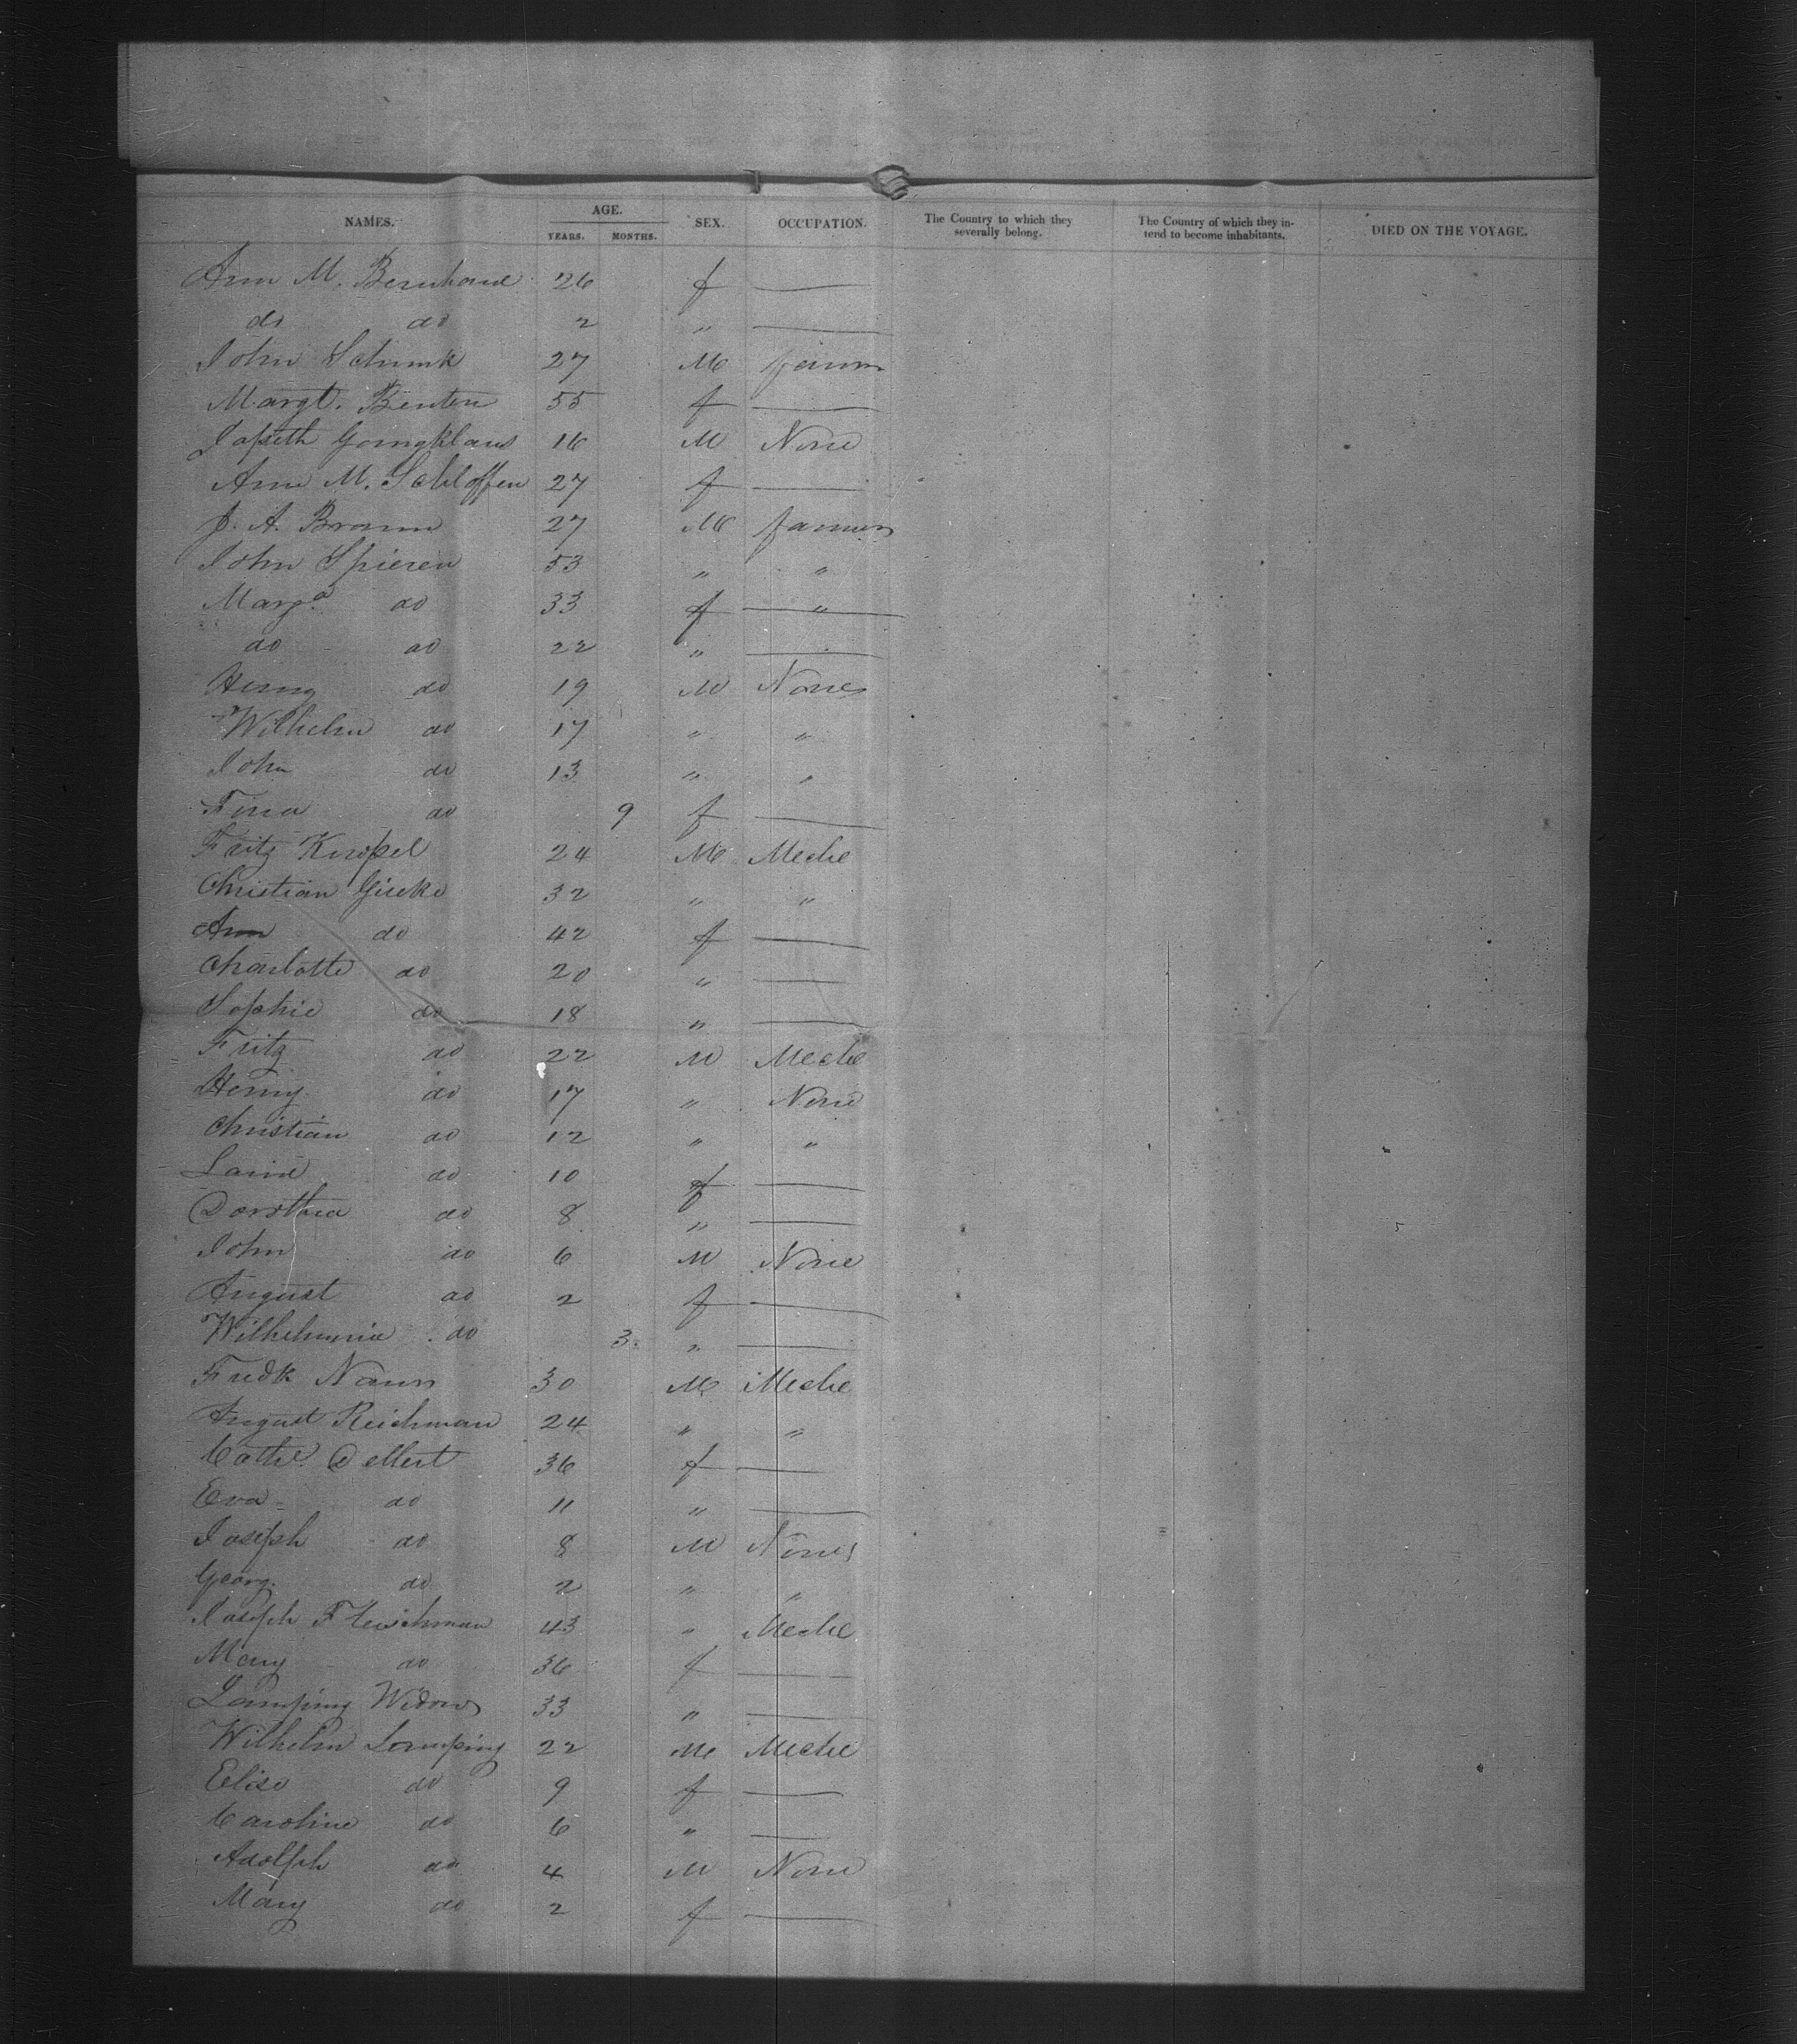 NAMES. AGE. YEARS. MONTHS. SEX. OCCUPATION. The Country to which they severally belong. The Country of which they intend to become inhabitants. DIED ON THE VOYAGE.
Ann M. Bernhard 26 f —
do do 2 " —
John Schunk 27 M farmr
Margt. Benten 55 f —
Joseth 16 M None
Ann M. Schloffen 27 f —
J. A. Braun 27 M farmers
John Spieren 53 " "
Marga do 33 f "
do do 22 " —
Henry do 19 M None
Wilhelm do 17 " "
John do 13 " "
Fina do 9 f —
Fritz Knopel 24 M Mechc
Christian Giseke 32 " "
Ann do 42 f —
Charlotte do 20 " —
Sophie do 18 " —
Fritz do 22 M Mechc
Henry do 17 " None
Christian do 12 " "
do 10 f —
Dorothea do 8 " —
John do 6 M None
August do 2 f —
Wilhelmina do 3 " —
Fredk Naun 30 M Mechc
August Reichman 24 " "
Cathe Dellert 36 f —
Eva do 11 " —
Joseph do 8 M None
Georg. do 2 " "
Joseph Fleischman 43 " Mechc
Mary do 36 f —
Lamping Widow 33 " —
Wilhelm Lamping 22 M Mechc
Elise do 9 f —
Caroline do 6 " —
Adolph do 4 M None
Mary do 2 f —